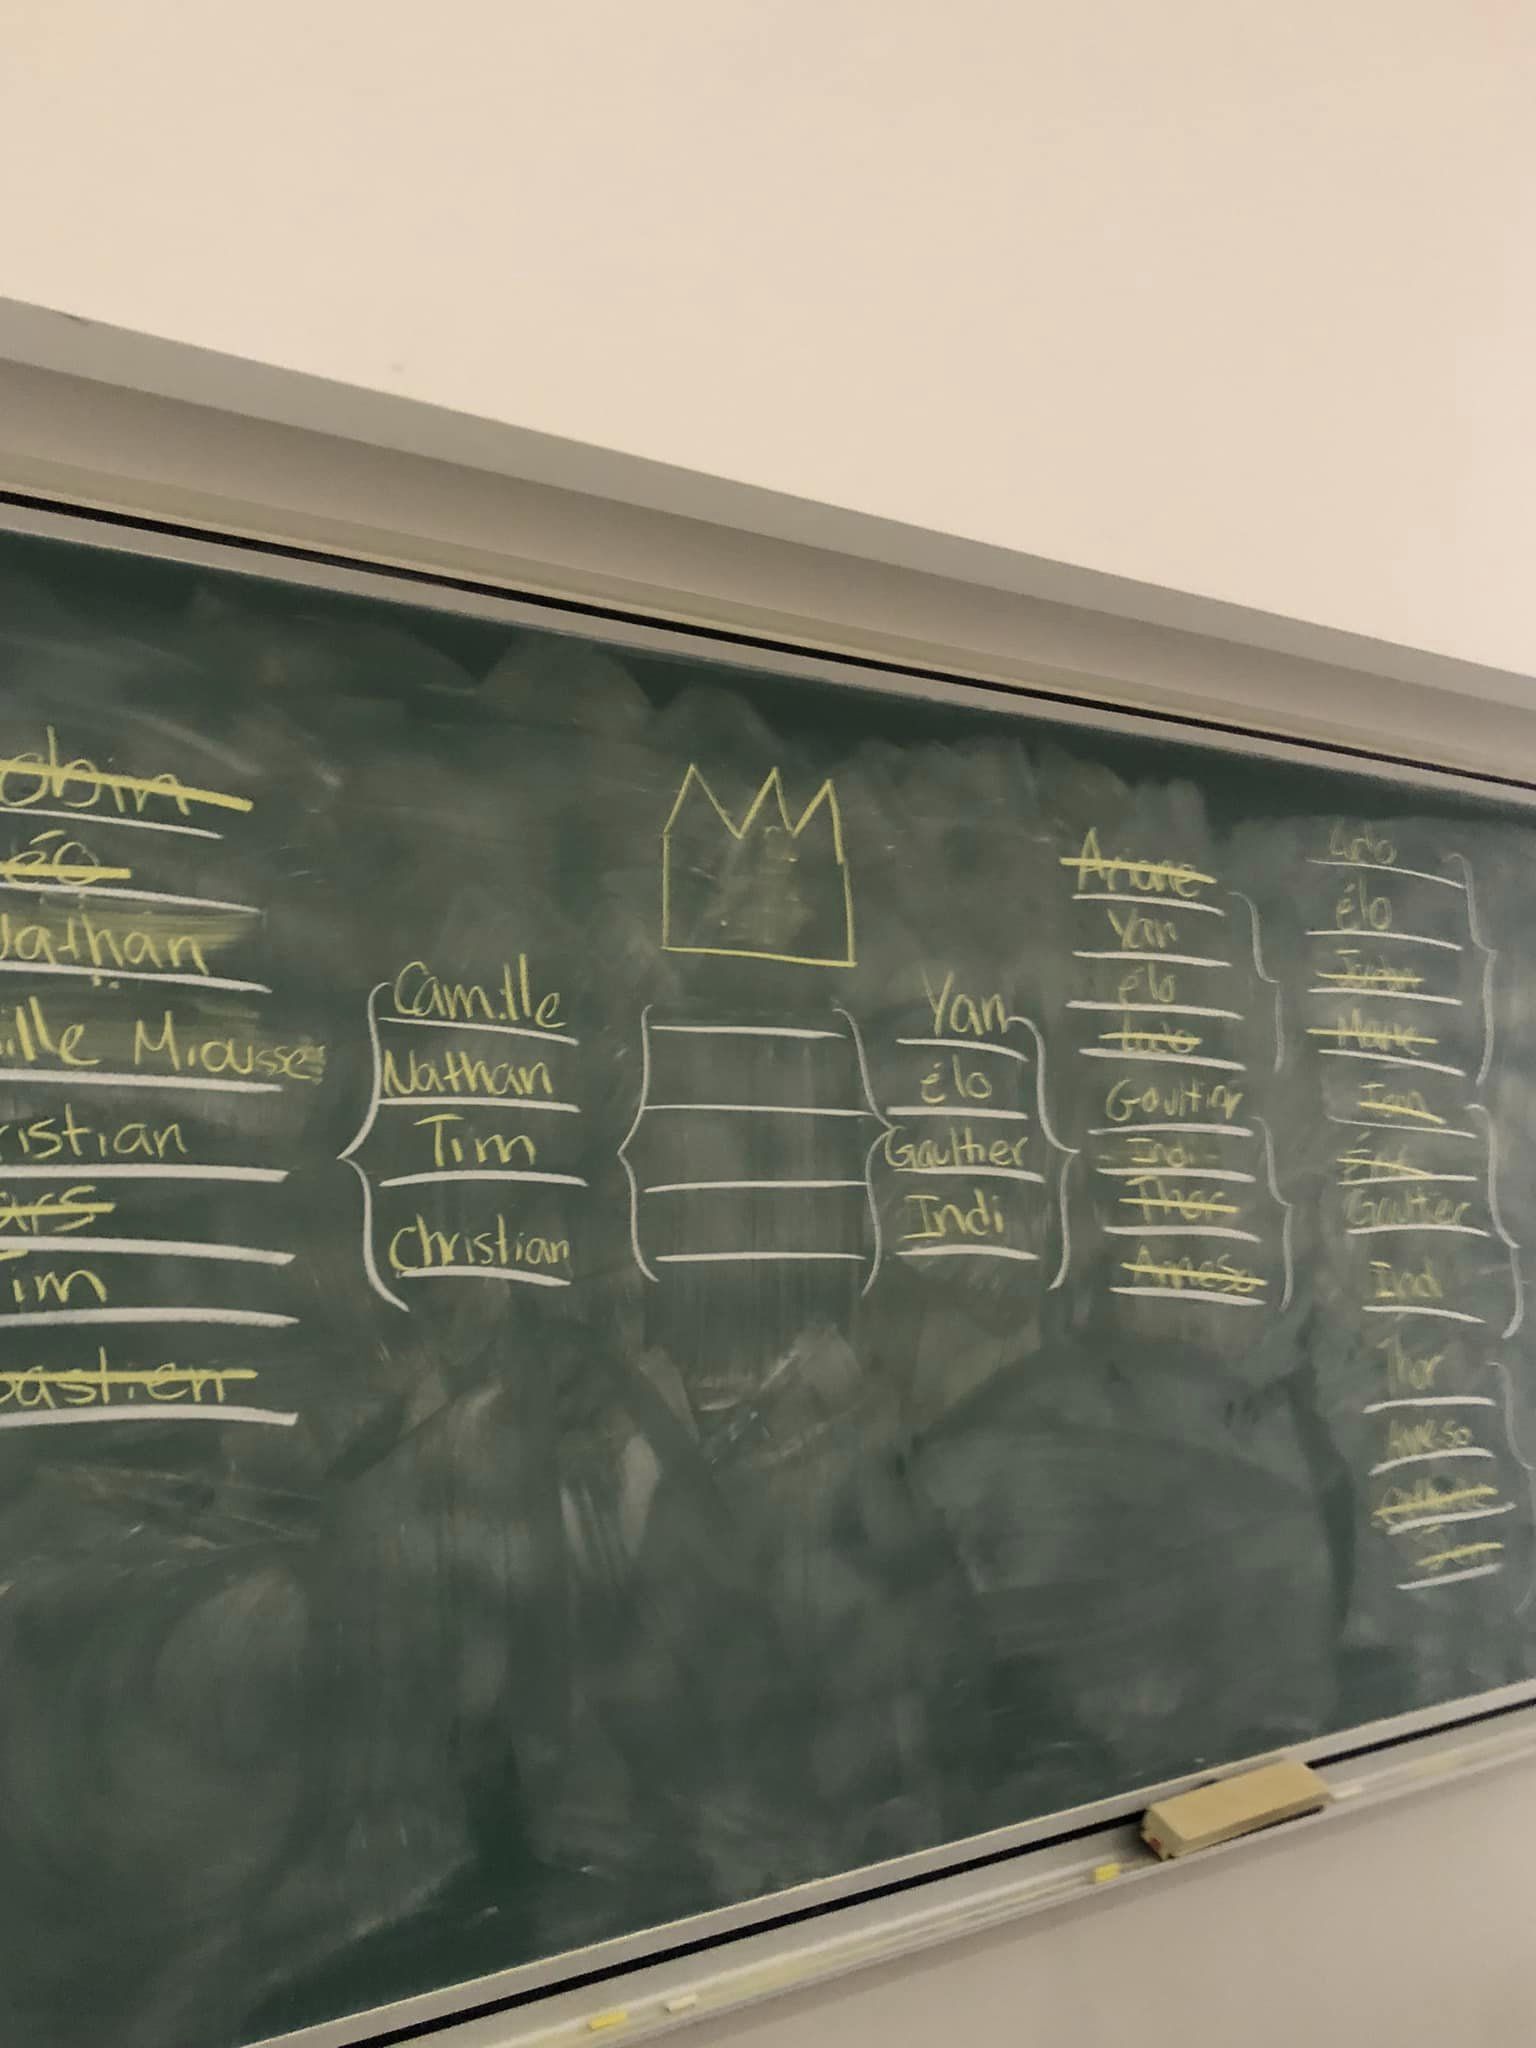 obin
éo
Nathan
ille Miousse
ristian
ars
im
bastien
Camille
Nathan
Tim
Christian
Yan
élo
Gaultier
Indi
Ariane
Yan
élo
Ludo
Gaultier
Indi
Thor
Ludo
élo
Jordan
Marie
Gaultier
Indi
Thor